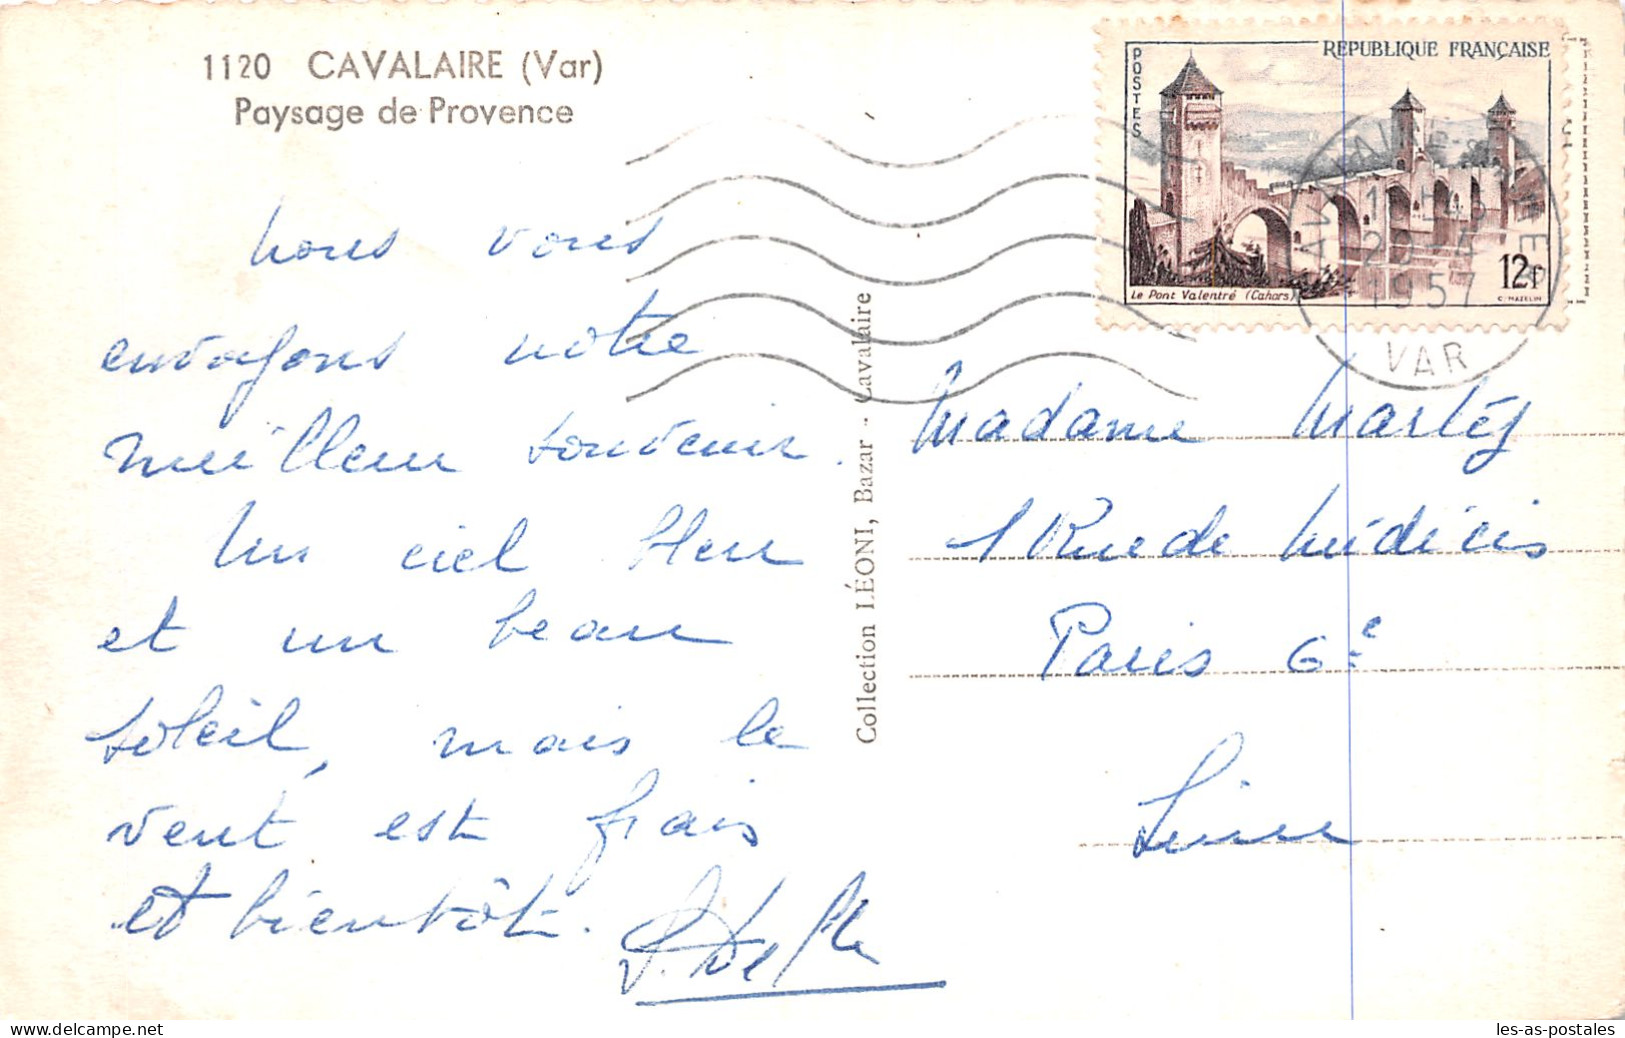 1120 CAVALAIRE (Var)
Paysage de Provence
Nous vous
envoyons notre
meilleur souvenir.
Un ciel bleu
et un beau
soleil, mais le
vent est frais
et bientôt.
Collection LÉONI, Bazar - Cavalaire
POSTES
RÉPUBLIQUE FRANÇAISE
Le Pont Valentré (Cahors)
12f
C. MAZELIN
20-4
1957
VAR
Madame
1 Rue de Médicis
Paris 6e
Seine
www.delcampe.net
les-as-postales